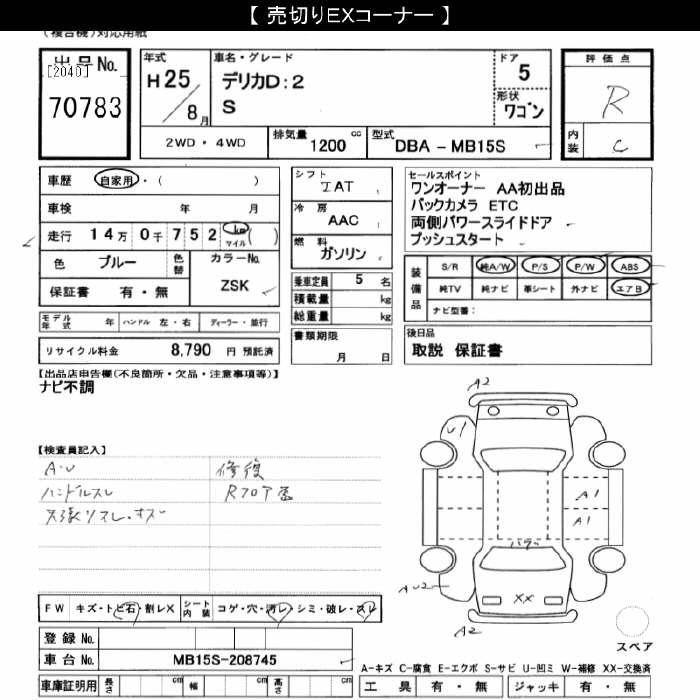 【 売切りEXコーナー 】
(複合機)対応用紙
出品No.
[2040]
70783
年式
H 25 / 8月
車名・グレード
デリカD:2
S
ドア
5
形状
ワゴン
評価点
R
内装
C
2WD・4WD
排気量
1200 cc
型式
DBA - MB15S
車歴 自家用・( )
車検 年 月
走行 14万0千752 km マイル ( )
色 ブルー 色替
カラーNo.
ZSK
保証書 有・無
シフト
IAT
冷房
AAC
燃料
ガソリン
乗車定員 5 名
積載量 kg
総重量 kg
セールスポイント
ワンオーナー AA初出品
バックカメラ ETC
両側パワースライドドア
プッシュスタート
装備品
S/R 純A/W P/S P/W ABS
純TV 純ナビ 革シート 外ナビ エアB
ナビ型番:
モデル年式 年 ハンドル 左・右 ディーラー・並行
リサイクル料金 8,790 円 預託済
書類期限
月 日
後日品
取説 保証書
【出品店申告欄(不良箇所・欠品・注意事項等)】
ナビ不調
【検査員記入】
A・U
修復
ハンドルスレ
Rフロア歪
天張リスレ・キズ
A2
U1
A1
A1
AU2
XX
A2
スペア
FW キズ・トビ石・割レX
シート内装 コゲ・穴・汚レ・シミ・破レ・スレ
登録 No.
車台 No. MB15S-208745
車庫証明用 長さ cm 幅 cm 高さ cm
A-キズ C-腐食 E-エクボ S-サビ U-凹ミ W-補修 XX-交換済
工具 有・無 ジャッキ 有・無